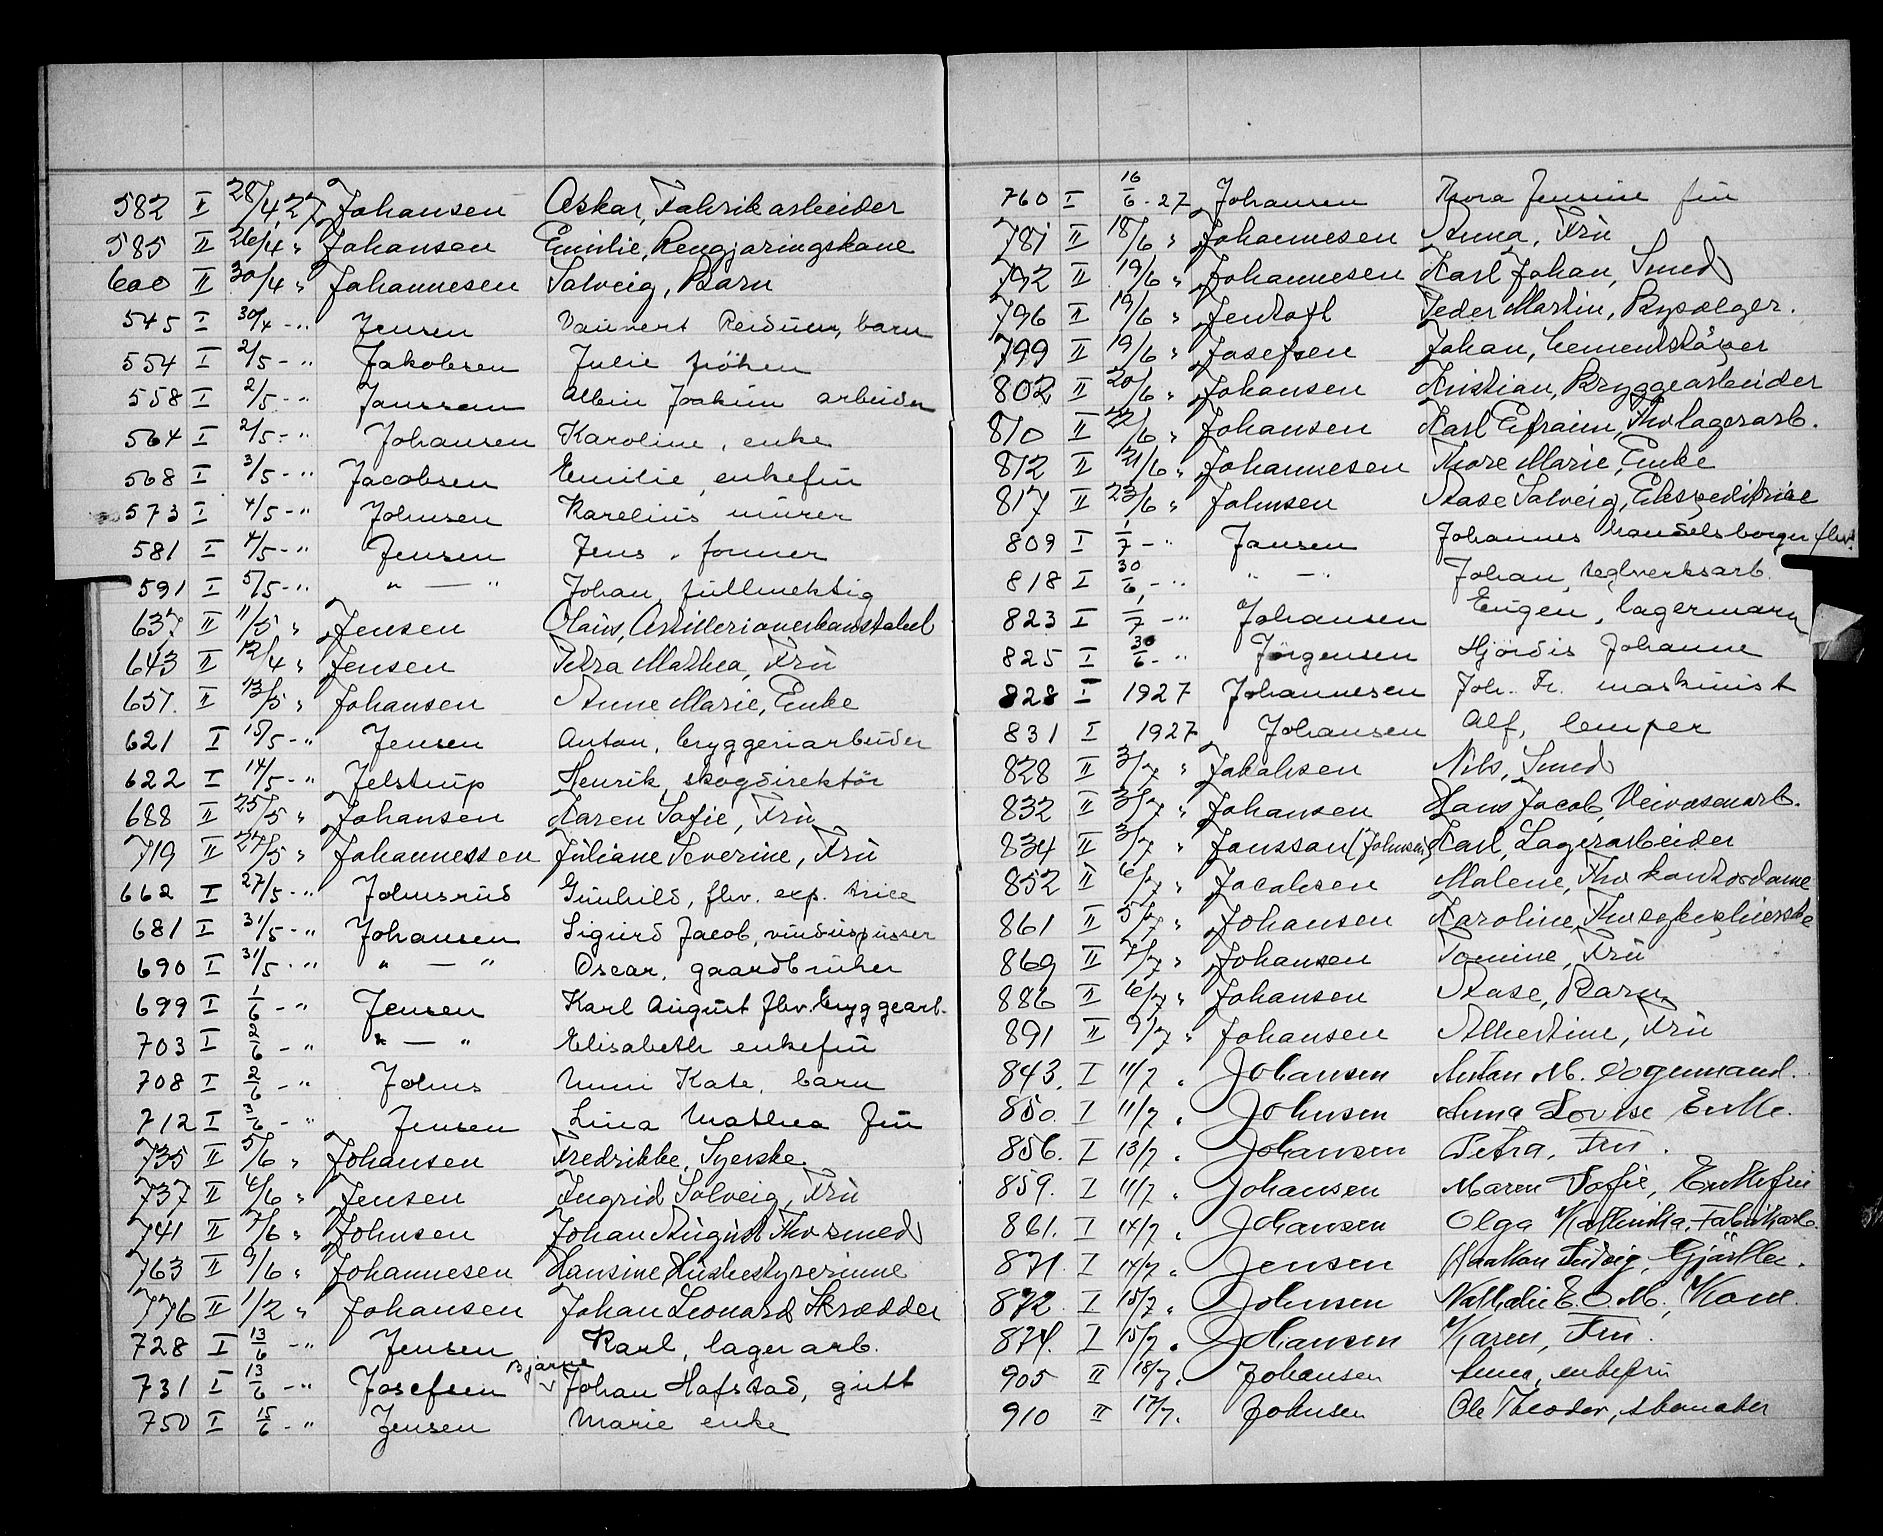 582 I 28/4 27 Johansen Oskar, Fabrikarbeider
585 II 26/4 " Johansen Emilie, Rengjøringskone
600 II 30/4 " Johannesen Solveig, Barn
545 I 30/4 - " Jensen Reidun, barn
554 I 2/5 - " Jakobsen Julie frøken
558 I 2/5 - " Janssen Albin Joakim arbeider
564 I 2/5 - " Johansen Karoline, enke
568 I 3/5 - " Jacobsen Emilie, enkefru
573 I 4/5 - " Johnsen Karelius murer
581 I 4/5 - " Jensen Jens, former
591 I 5/5 - " " — " Johan, fullmektig
637 II 11/5 " Jensen Olaus, Artilleriverkanstabel
643 II 12/4 " Jensen Petra Mathea, Fru
657. II 13/5 " Johansen Anne Marie, Enke
621 I 15/5 - " Jensen Anton, bryggeriarbeider
622 I 14/5 - " Jelstrup Henrik, skogdirektør
688 II 25/5 " Johansen Karen Sofie, Fru
719 II 27/5 " Johannessen Juliane Severine, Fru
662 I 27/5 - " Johnsrud Gunhild, fhv. exp. trice
681 I 31/5 - " Johansen Sigurd Jacob, vinduspusser
690 I 31/5 - " " — " Oscar, gaardbruker
699 I 1/6 - " Jensen Karl August fhv. bryggearb.
703 I 2/6 - " " — " Elisabeth enkefru
708 I 2/6 - " Johns Unni Kate, barn
712 I 3/6 - " Jensen Lina Mathea fru
735 II 5/6 " Johansen Fredrikke, Syerske
737 II 4/6 " Jensen Ingrid Solveig, Fru
741 II 7/6 " Johnsen Johan August Fhv smed
763 II 9/6 " Johannesen Hansine Husbestyrerinne
776 II 1/2 " Johansen Johan Leonard Skrædder
728 I 13/6 - " Jensen Karl, lagerarb.
731 I 13/6 - " Josefsen Bjarne Johan Hafstad, gutt
750 I 15/6 - " Jensen Marie enke
760 I 16/6 - 27 Johansen Thora Jensine fru
781 II 18/6 " Johannesen Anna, Fru
792 II 19/6 " Johannesen Karl Johan, Smed
796 II 19/6 " Jentoft Peder Martin, Bypælger.
799 II 19/6 " Josefsen Johan, Cementstøper
802 II 20/6 " Johansen Kristian, Bryggearbeider
810 II 22/6 " Johansen Karl Efraim, Fhv lagerarb.
812 II 21/6 " Johannesen Thore Marie, Enke
817 II 23/6 " Johnsen Aase Solveig, Ekspeditrice
809 I 1/7 - " Jansen Johannes handelsborger fhv.
818 I 30/6 - " " — " Johan, teglverksarb.
823 I 1/7 - " Johansen Eugen, lagermann
825 I 30/6 - " Jørgensen Hjørdis Johanne
828 I 1927 Johannesen Joh. Fr. maskinist
831 I 1927 Johansen Alf, lemper
828 II 3/7 " Jakobsen Nils, Smed
832 II 3/7 " Johansen Hans Jacob, Veivæsenarb.
834 II 3/7 " Janssan (Johnsen) Karl, Lagerarbeider
852 II 6/7 " Jacobsen Malene, Fhv kontordame
861 II 5/7 " Johansen Karoline,
869 II 7/7 " Johansen Tomine, Fru
886 II 6/7 " Johansen Aase, Barn
891 II 9/7 " Johansen Albertine, Fru
843. I 11/7 " Johansen Anton M. Vognmand.
850. I 11/7 " Johnsen Anna Lovise Enke.
856. I 13/7 " Johansen Petra, Fru.
859. I 11/7 " Johansen Maren Sofie, Enkefru
861. I 14/7 " Johansen Olga Kathinka, Fabrikarb.
871. I 14/7 " Jensen Haakon Ludvig, Gjørtler.
872. I 15/7 " Johnsen Nathalie E. O. M., Kone.
874. I 15/7 " Johansen Karen, Fru.
905 II 18/7 " Johansen Anna, enkefru
910 II 17/7. Johnsen Ole Theodor, skomaker